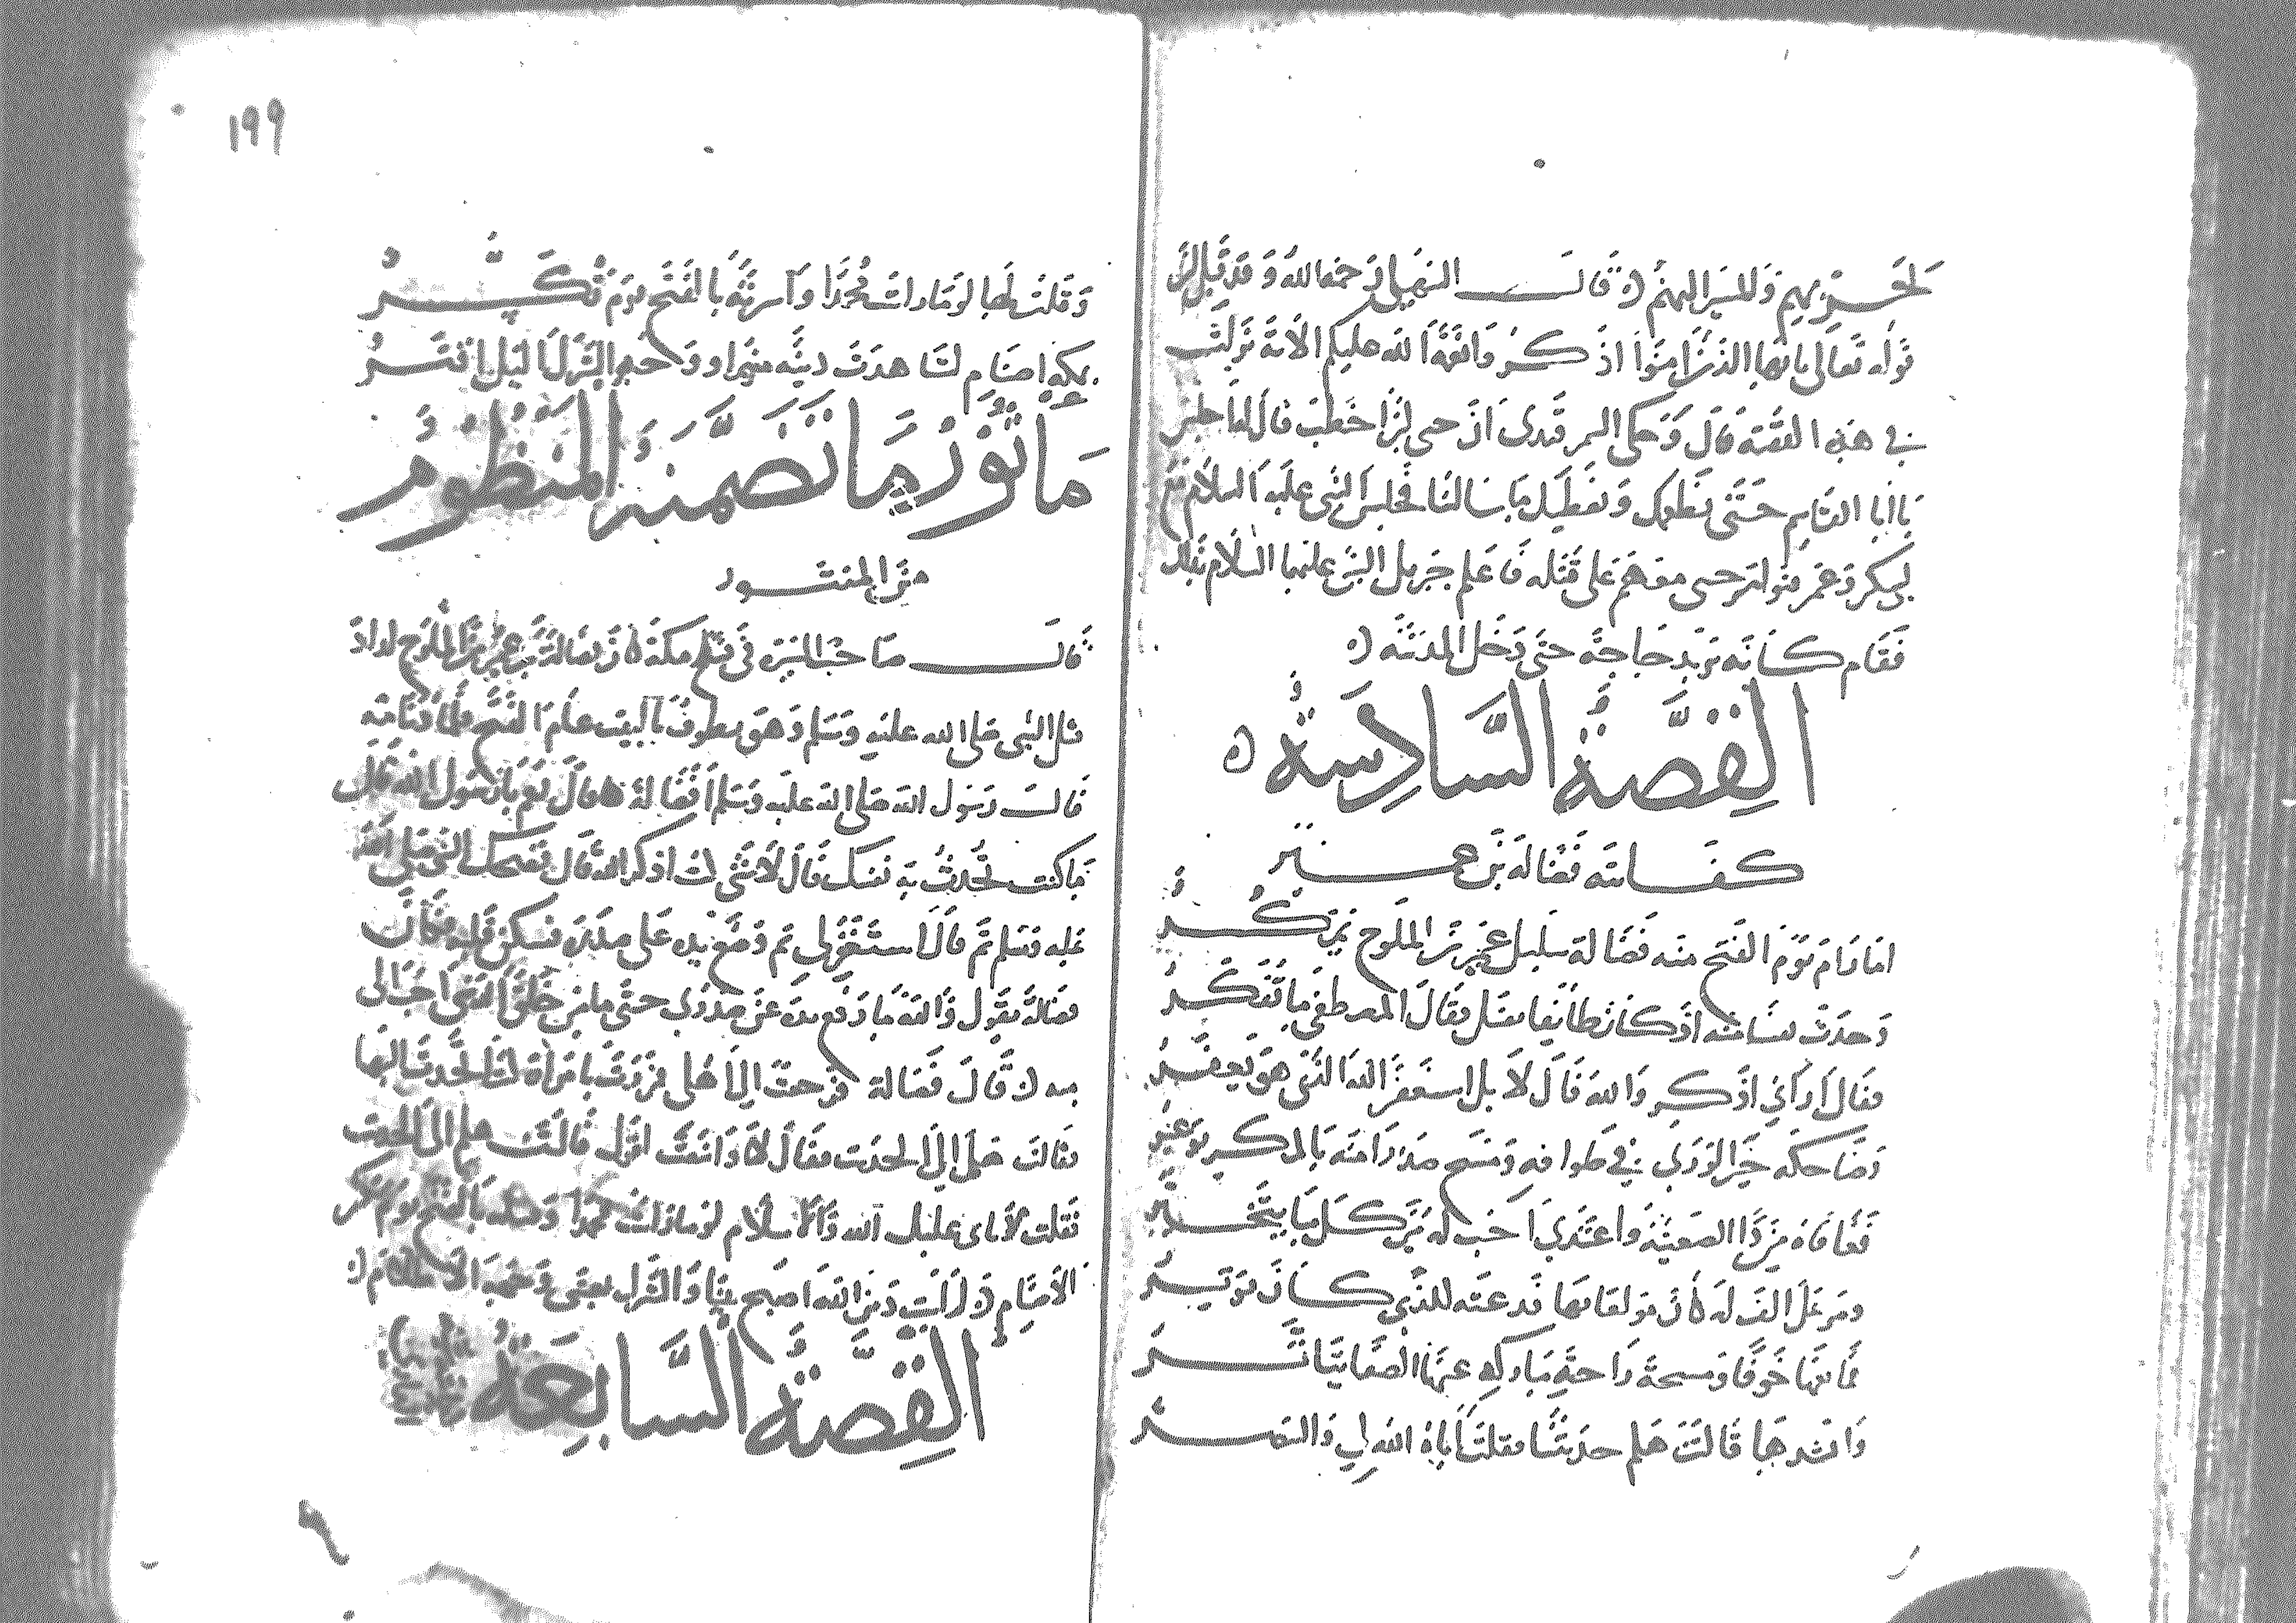 لحقير بهم وللسير اليهم ه قال السهيلي رحمه الله وقد قيل ان
قوله تعالى يا ايها الذين امنوا اذكروا نعمة الله عليكم الاية نزلت
في هذه القصة قال وحكى السمرقندي ان حيي بن اخطب قال لما جلس
يا ابا القاسم حتى نطعمك ونعطيك ما سالتنا فجلس النبي عليه السلام مع
ابي بكر وعمر حيي معهم على قتله فاعلم جبريل النبي عليهما السلام بذلك
فقام كانه يريد حاجة حتى دخل المدينة ه
القصة السادسة ه
كفايته فضالة بن عمير
اما رام يوم الفتح منه فضالة سليل عمير بن الملوح
وحدث نفسا منه اذ كان طائفا بقتل فقال المصطفى ما تفكر
فقال اراني اذكر والله قال لا بل استغفر الله الذي هو يغفر
وضاحكه خير الورى في طوافه ومسح صدرا منه بالمكر يوغر
فعافاه من ذا الصغينة واغتدى احب له من كل ما يتخير
ومر على الف له كان مولعا بها قد عته للذي كان يوثر
فمانعها خوفا ومسحة راحة مباركه عنها الصفا يتاثر
وانشدها قالت هلم حديثنا فقلت اباه الله لي والتصبر
١٩٩
وقلت لها لو ما رات محمدا واسرته بالفتح يوم تكسر
بمكه اصنام لشاهدت دينه منيرا ووجه الشرك الليل اقتر
ماثور ما تضمنه المنظوم
من المنثور
قال صاحب السيره في فتح مكة كان فضالة بن عمير بن الملوح اراد
قتل النبي صلى الله عليه وسلم وهو يطوف بالبيت عام الفتح فلما دنا منه
قال رسول الله صلى الله عليه وسلم افضالة قال نعم يا رسول الله قال
ما كنت تحدث به نفسك قال لا شي كنت اذكر الله قال فضحك النبي صلى الله
عليه وسلم ثم قال استغفر لي ثم وضع يده على صدره فسكن قلبه فكان
فضالة يقول والله ما رفع يده عن صدري حتى ما من خلق الله شي احب الي
منه ه قال فضالة فرجعت الى اهلي فمررت بامراة كنت اتحدث اليها
فقالت هلم الى الحديث فقال لا وانبعث اقول قالت هلم الى الحديث
فقلت لا يابى عليك الله والاسلام لو ما رات محمدا وقبيله بالفتح يوم تكسر
الاصنام ه لرايت دين الله اصبح بينا والشرك يغشى وجهه الاظلام ه
القصة السابعة